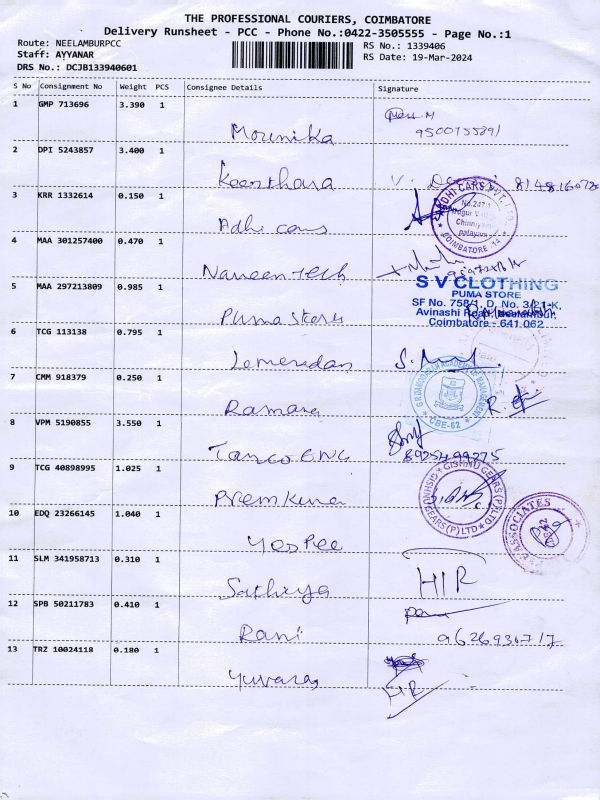 THE PROFESSIONAL COURIERS, COIMBATORE
Delivery Runsheet - PCC - Phone No.:0422-3505555 - Page No.:1
Route: NEELAMBURPCC
Staff: AYYANAR
DRS No.: DCJB133940601
RS No.: 1339406
RS Date: 19-Mar-2024
S No Consignment No Weight PCS Consignee Details Signature
1 GMP 713696 3.390 1
Mounika
2 DPI 5243857 3.400 1
Keerthana
3 KRR 1332614 0.150 1
Adhi cars
COIMBATORE -14
4 MAA 301257400 0.470 1
Naveen tech
5 MAA 297213809 0.985 1
Puma Store
S V CLOTHING
PUMA STORE
SF No. 758/1, D, No. 3/2,1-K,
Avinashi Road, Neelambur,
Coimbatore - 641 062
6 TCG 113138 0.795 1
Lemeridan
7 CMM 918379 0.250 1
Ramana
CBE-62
8 VPM 5190855 3.550 1
8925499275
9 TCG 40898995 1.025 1
Prem Kuma
GEARS (P) LTD
10 EDQ 23266145 1.040 1
ASSOCIATES
11 SLM 341958713 0.310 1
Sathiya
HIR
12 SPB 50211783 0.410 1
Rani
9626934717
13 TRZ 10024118 0.180 1
Yuvaraj
HR